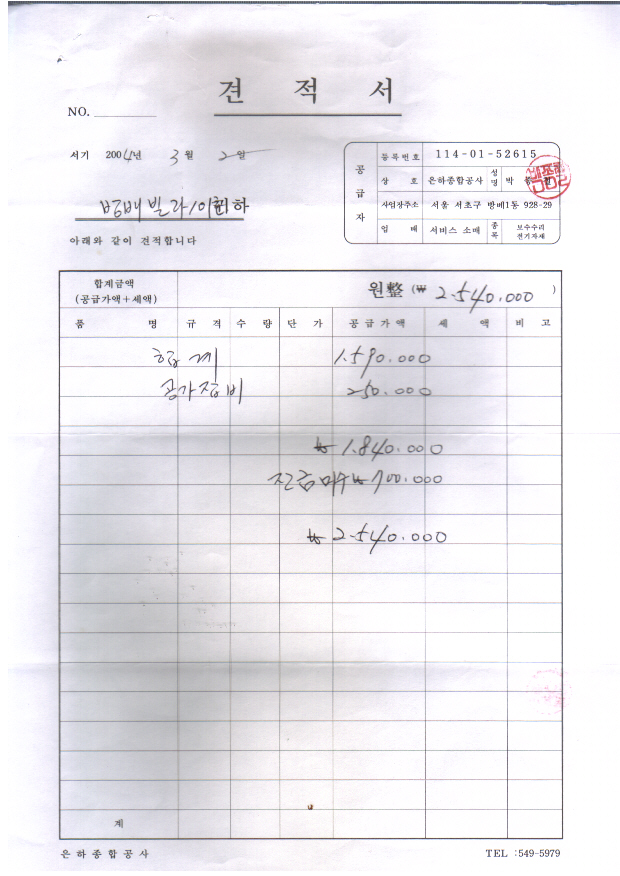 견 적 서
NO.
서기 2004년 3월 2일
빌라/이
아래와 같이 견적합니다
공급자
등록번호 114-01-52615
상 호 은하종합공사 성명 박
사업장주소 서울 서초구 방배1동 928-29
업 태 서비스 소매 종목 보수수리 전기자재
합계금액
(공급가액+세액)
원整 (₩ 2.540.000 )
품 명 규 격 수 량 단 가 공 급 가 액 세 액 비 고
합계 1.590.000
공가잡비 250.000
₩ 1.840.000
₩ 700.000
₩ 2.540.000
계
은하종합공사
TEL :549-5979